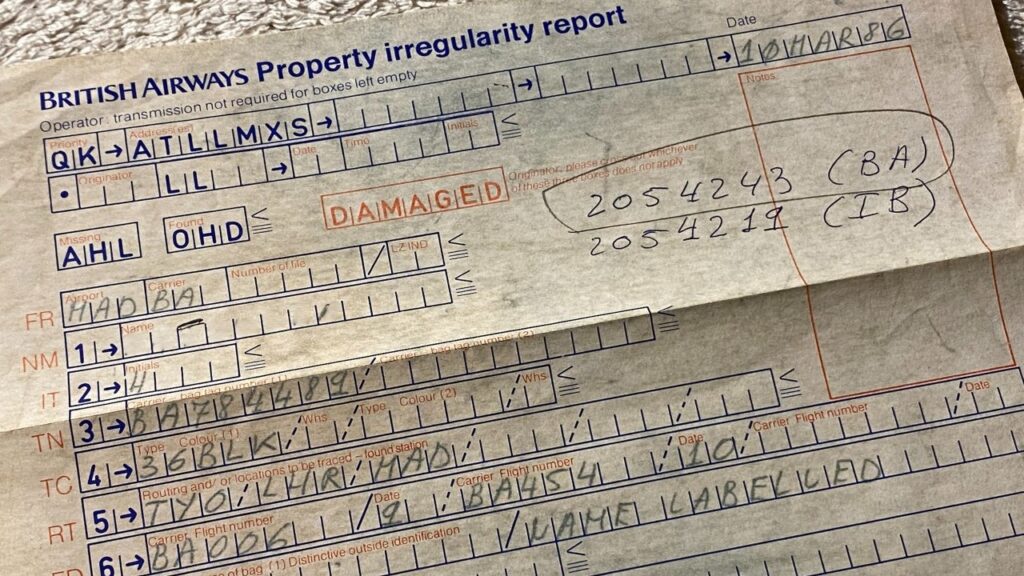 BRITISH AIRWAYS Property irregularity report
Operator: transmission not required for boxes left empty
Date
10MAR86
Notes
Priority Address(es)
QK → ATLLMXS → → →
Originator Date Time Initials
• LL →
Missing AHL
Found OHD
DAMAGED
Originator, please cross out whichever
of these three boxes does not apply
2054243 (BA)
2054219 (IB)
Airport Carrier Number of file LZ IND
FR MAD BA /
Name
NM 1 →
Initials
IT 2 → 4
Carrier – bag tag number (1) Carrier – bag tag number (2)
TN 3 → BA784489 /
Type Colour (1) Whs Type Colour (2) Whs
TC 4 → 36BLK / / /
Routing and/or locations to be traced – found station
RT 5 → TYO/LHR/MAD/ / /
Carrier Flight number Date Carrier Flight number Date Carrier Flight number Date
FD 6 → BA006 / 9 / BA454 / 10 / /
of bag (1) Distinctive outside identification
/NAME LABELLED